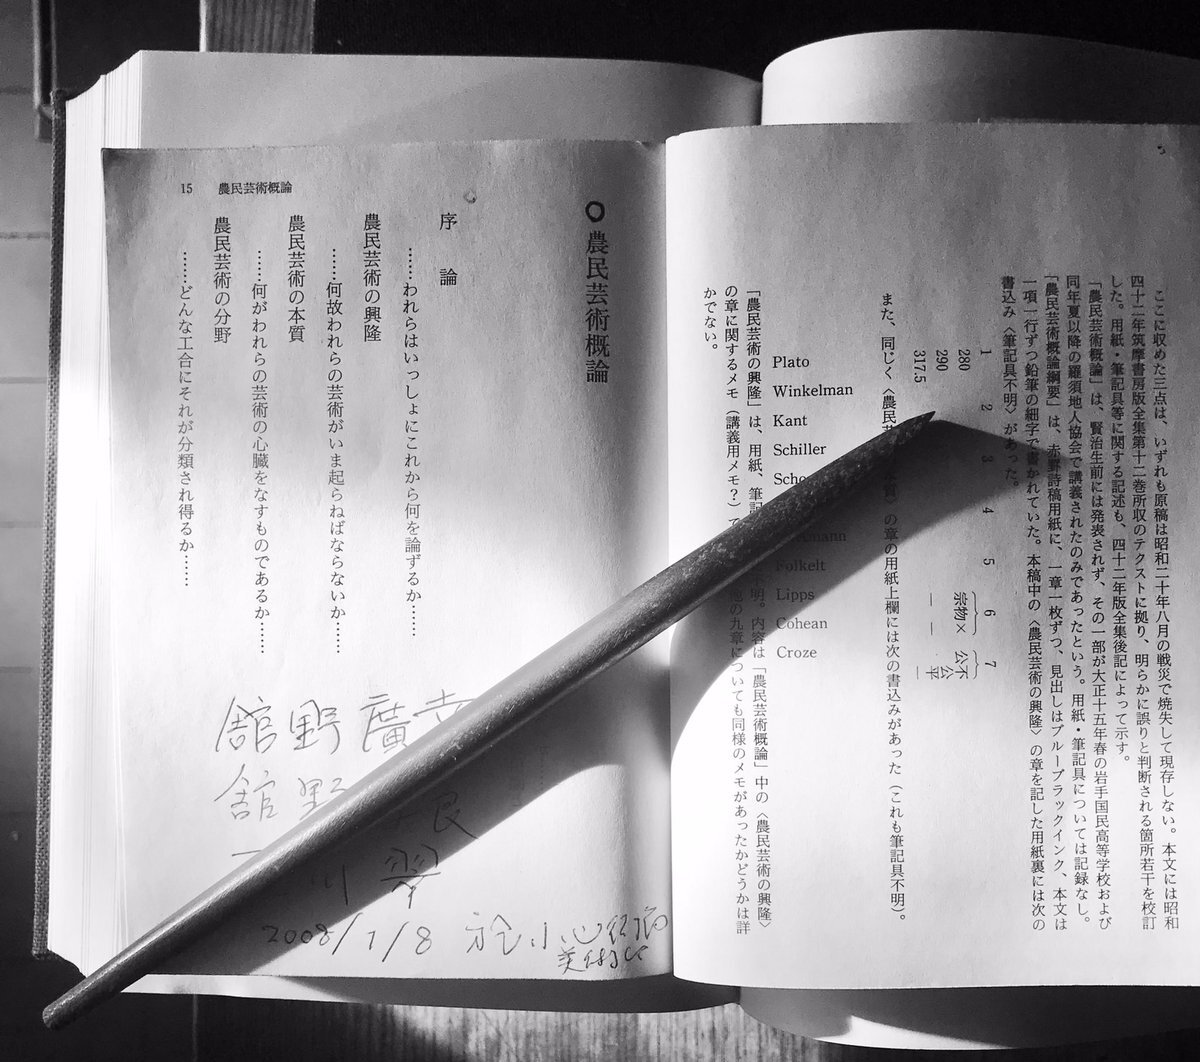 ここに収めた三点は、いずれも原稿は昭和二十年八月の戦災で焼失して現存しない。本文には昭和
四十二年筑摩書房版全集第十二巻所収のテクストに拠り、明らかに誤りと判断される箇所若干を校訂
した。用紙・筆記具等に関する記述も、四十二年版全集後記によって示す。
「農民芸術概論」は、賢治生前には発表されず、その一部が大正十五年春の岩手国民高等学校および
同年夏以降の羅須地人協会で講義されたのみであったという。用紙・筆記具については記録なし。
「農民芸術概論綱要」は、赤罫詩稿用紙に、一章一枚ずつ、見出しはブルーブラックインク、本文は
一項一行ずつ鉛筆の細字で書かれていた。本稿中の〈農民芸術の興隆〉の章を記した用紙裏には次の
書込み〈筆記具不明〉があった。
1 2 3 4 5 6 7
280 宗物× 不公平
290
317.5
また、同じく〈農民芸 〉の章の用紙上欄には次の書込みがあった（これも筆記具不明）。
Plato
Winkelman
Kant
Schiller
Scho
mann
Folkelt
Lipps
Cohean
Croze
「農民芸術の興隆」は、用紙、筆記 不明。内容は「農民芸術概論」中の〈農民芸術の興隆〉
の章に関するメモ（講義用メモ？）で 他の九章についても同様のメモがあったかどうかは詳
かでない。
○農民芸術概論
序論
……われらはいっしょにこれから何を論ずるか……
農民芸術の興隆
……何故われらの芸術がいま起らねばならないか……
農民芸術の本質
……何がわれらの芸術の心臓をなすものであるか……
農民芸術の分野
……どんな工合にそれが分類され得るか……
15 農民芸術概論
舘野廣幸
舘野 良
川 翠
2008/1/8 於 小
美術